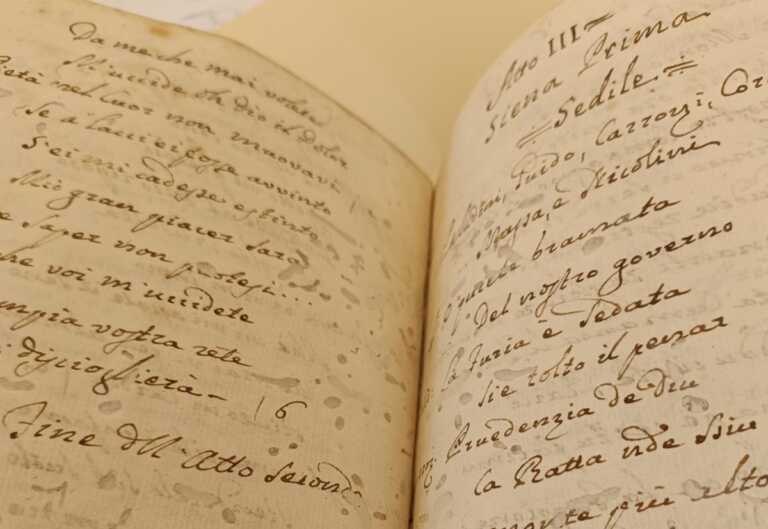 Da me che mai volete
M'uccide oh dio il dolor
Pietà nel Cuor non muovavi
Se a' lacci ei fosse avvinto
S'ei mi cadesse estinto
Mio gran piacer sarà
saper non potessi...
che voi m'uccidete
vostra rete
disciogliera — 16
Fine dll'Atto Second
Atto III =
Sciena Prima
= Sedile =
Guido, Carrozzi, Cor
Massa, e Nicolini
bramata
Del nostro governo
La Furia è Sedata
Sie tolto il pensar
Pruedenzia de Diu
La Ratta nde Siu
più alto